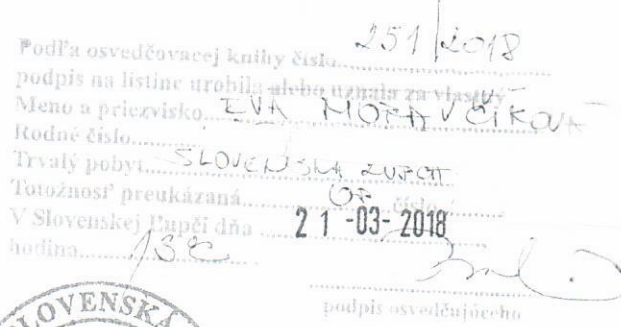 Podľa osvedčovacej knihy číslo..... 251/2018
podpis na listine urobila alebo uznala za vlastný
Meno a priezvisko..... EVA MORAVČÍKOVÁ
Rodné číslo.....
Trvalý pobyt..... SLOVENSKÁ ĽUPČA
Totožnosť preukázaná..... OP číslo.....
V Slovenskej Ľupči dňa ..... 21 -03- 2018
hodina..... 13
podpis osvedčujúceho
SLOVENSKÁ